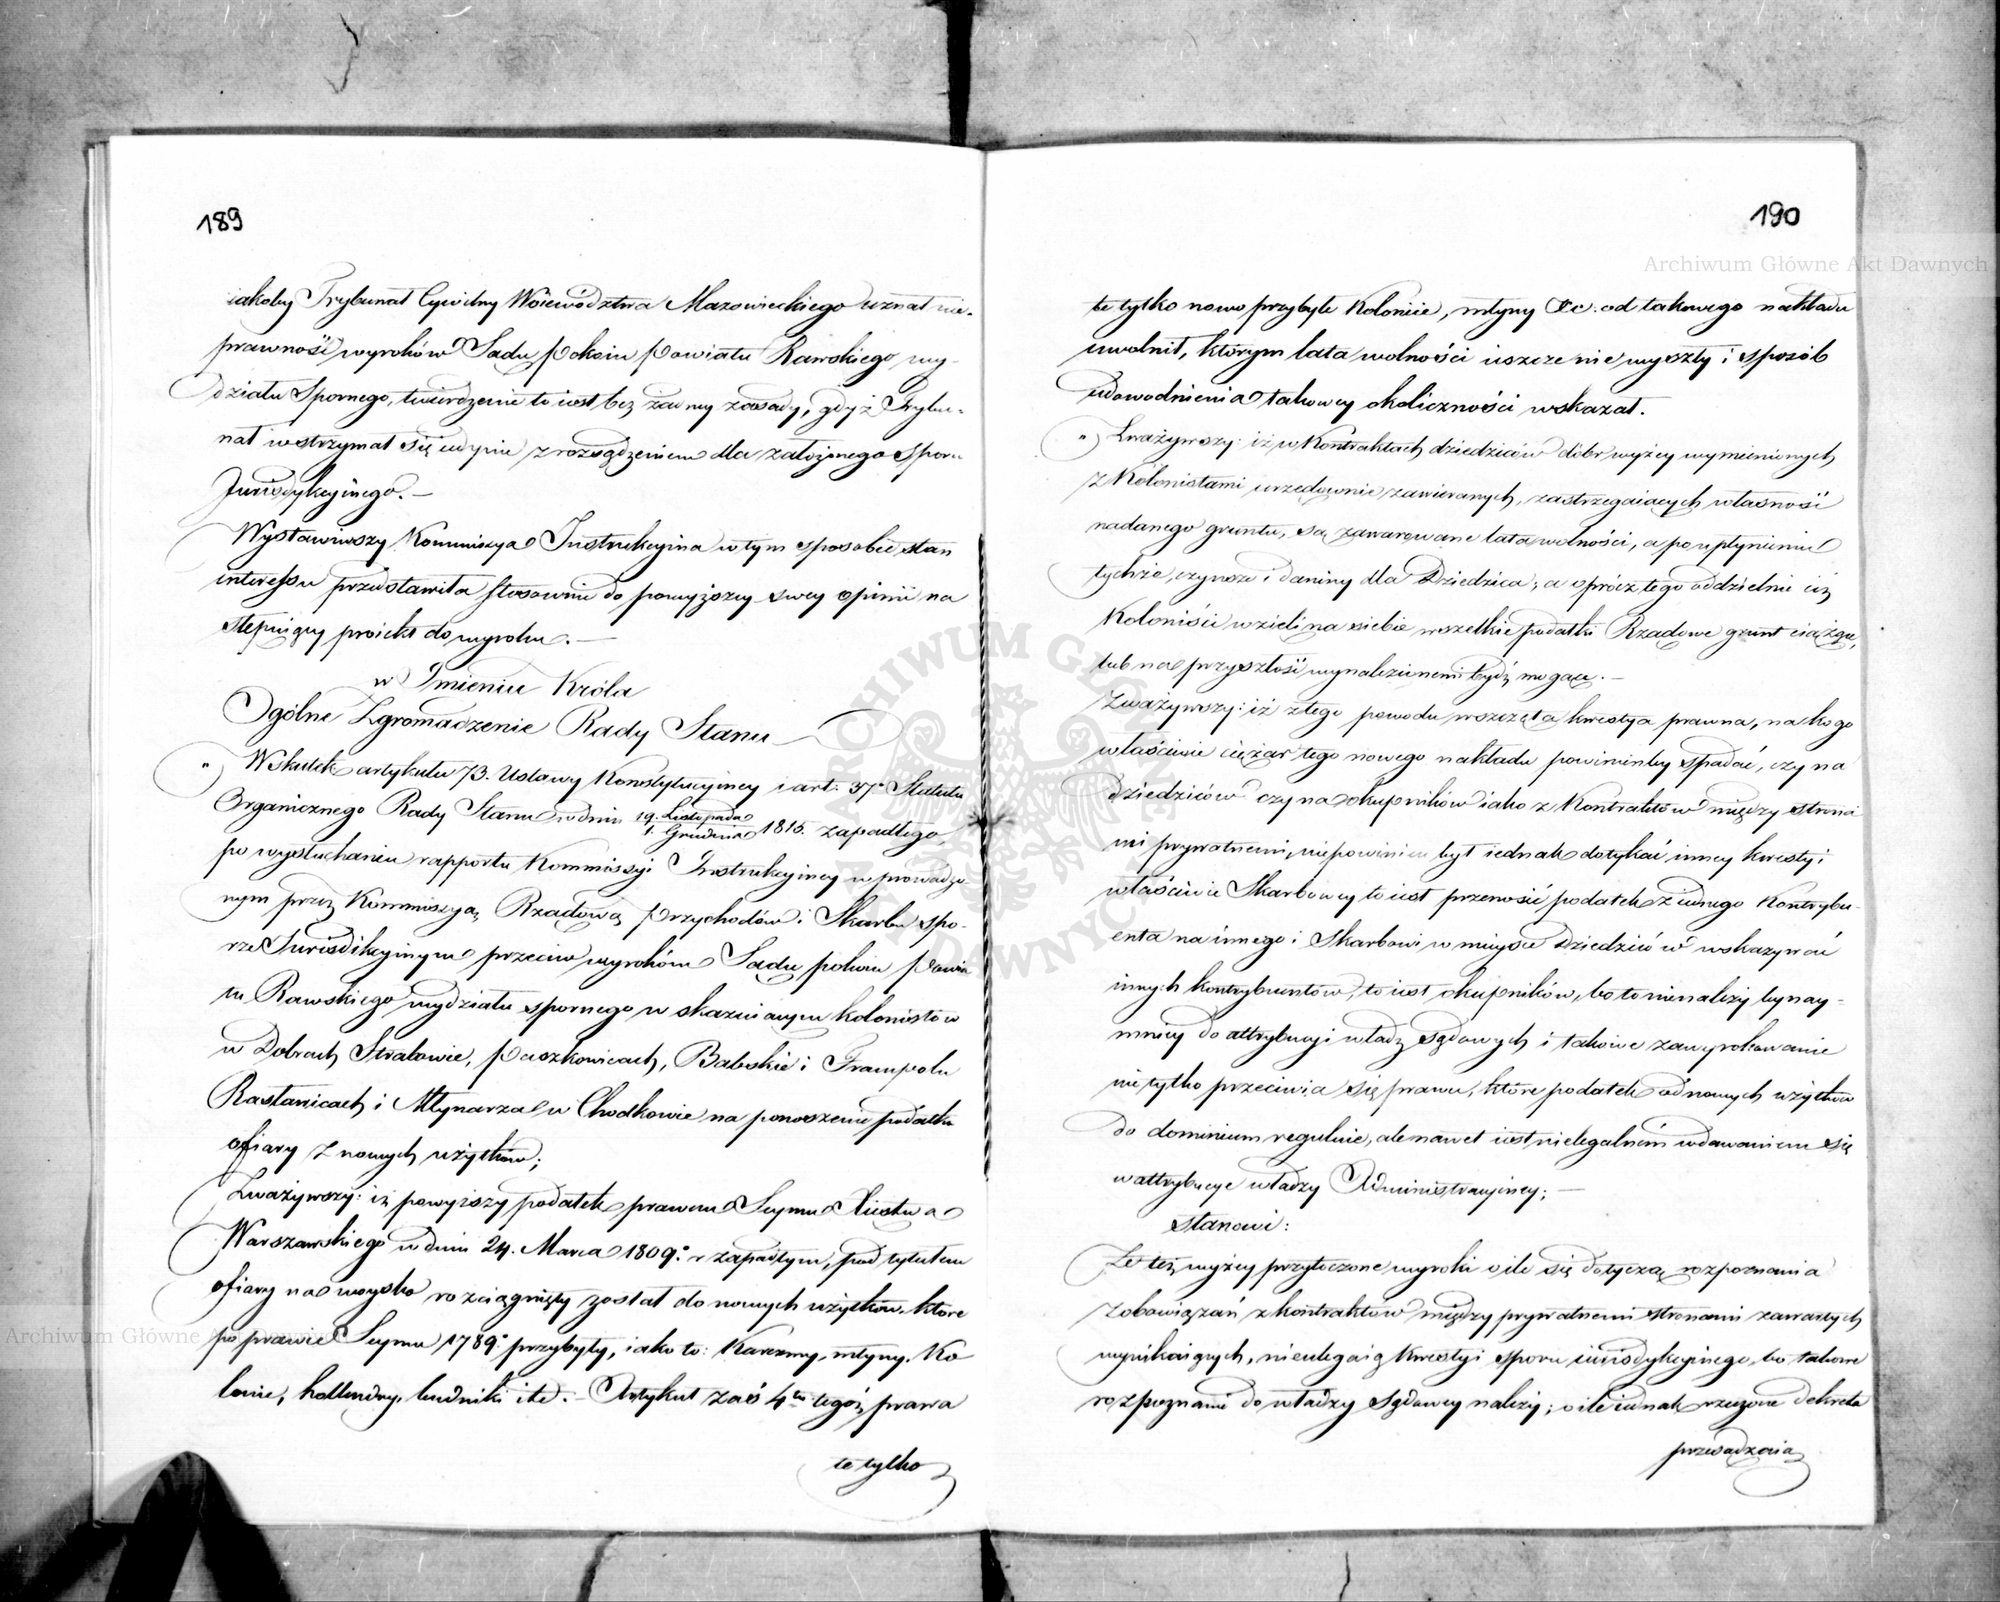 189
iakoby Trybunał Cywilny Woiewództwa Mazowieckiego uznał nie-
prawność wyroków Sądu Pokoiu Powiatu Rawskiego wy-
działu Spornego, twierdzenie to iest bez żadney zasady, gdyż Trybu-
nał wstrzymał się iedynie z rozsądzeniem dla założonego sporu
Jurisdykcyinego. —
Wystawiwszy Kommissya Instrukcyina w tym sposobie stan
interessu przedstawiła stosownie do powyższey swey opinii na
stępuiący proiekt do wyroku. —
w Imieniu Króla
Ogólne Zgromadzenie Rady Stanu
" Wskutek artykułu 73. Ustawy Konstytucyiney i art: 37° Statutu
Organicznego Rady Stanu w dniu 19. Listopada / 1. Grudnia 1815. zapadłego,
po wysłuchaniu rapportu Kommissyi Instrukcyiney w prowadzo-
nym przez Kommissyą Rządową Przychodów i Skarbu spo-
rze Jurisdikcyinym przeciw wyrokóm Sądu pokoiu Powia
tu Rawskiego wydziału spornego w skazuiącym kolonistów
w Dobrach Strakowie, Paszkowicach, Babskie i Frampolu
Rastawicach i Młynarza w Chodkowie na ponoszenie podatku
ofiary z nowych użytków;
Zważywszy: iż powyższy podatek prawem Seymu Xięstwa
Warszawskiego w dniu 24. Marca 1809. r zapadłym, pod tytułem
ofiary na woysko rozciągnięty został do nowych użytków, które
po prawie Seymu 1789. przybyły, iako to: Karczmy, młyny, Ko
lonie, hollendry, budniki itd. — Artykuł zaś 4ty tegóż prawa
te tylko
190
te tylko nowo przybyłe Kolonie, młyny &c. od takowego nakładu
uwolnił, którym lata wolności ieszcze nie wyszły i sposób
udowodnienia takowey okoliczności wskazał.
" Zważywszy: iż w Kontraktach dziedziców dóbr wyżey wymienionych
z Kolonistami urzędownie zawieranych, zastrzegaiących własność
nadanego gruntu, są zawarowane lata wolności, a po upłynieniu
tychże, czynsze i daniny dla Dziedzica; a oprócz tego oddzielnie ciż
Koloniści wzieli na siebie wszelkie podatki Rządowe grunt ciążące,
lub na przyszłość wynalezionemi bydź mogące. —
Zważywszy: iż z tego powodu wszczęta kwestya prawna, na kogo
właściwie ciężar tego nowego nakładu powinienby spadać, czy na
dziedziców czy na okupników iako z Kontraktów między strona
mi prywatnemi, niepowinien był iednak dotykać inney kwestyi
właściwie Skarbowey to iest przenosić podatek z iednego Kontrybu-
enta na innego i Skarbowi w mieysce Dziedziców wskazywać
innych kontrybuentów, to iest okupników, bo to nienależy bynay-
mniey do attrybucyi władz sądowych i takowe zawyrokowanie
nie tylko przeciwia się prawu, które podatek od nowych użytków
do dominium reguluie, ale nawet iest nielegalném wdawaniem się
w attrybucye władzy Administracyiney; —
Stanowi:
Że też wyżey przytoczone wyroki o ile się dotyczą rozpoznania
zobowiązań z kontraktów między prywatnemi stronami zawartych
wynikaiących, nieulegaią kwestyi sporu iurisdykcyinego, bo takowe
rozpoznanie do władzy sądowey należy; o ile iednak rzeczone dekreta
przesądzaią